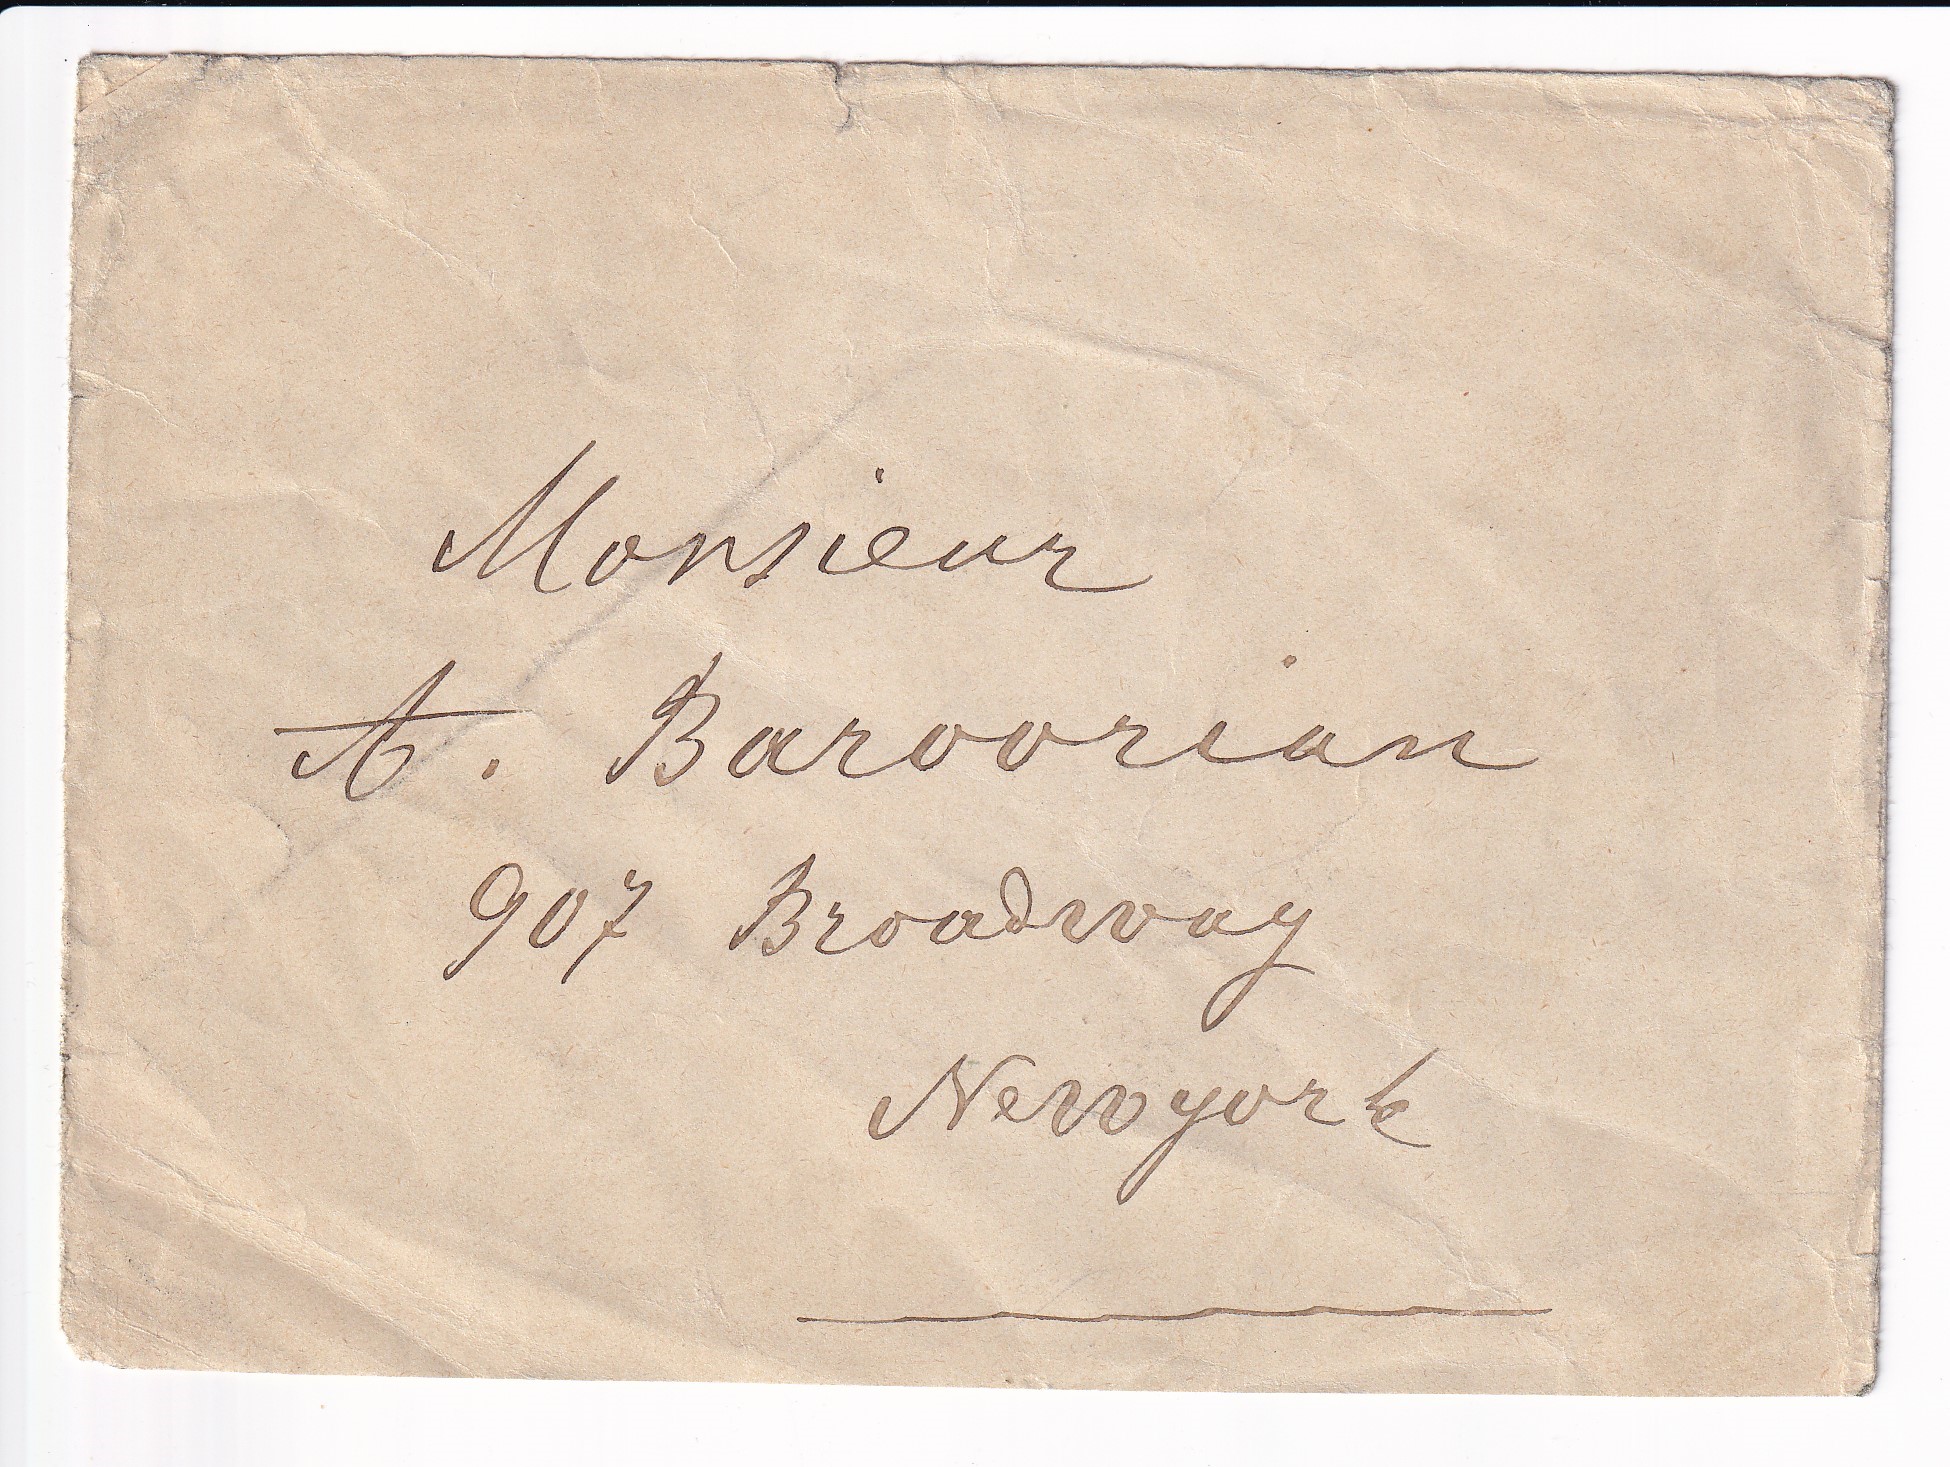 Monsieur
A. Baroorian
907 Broadway
Newyork